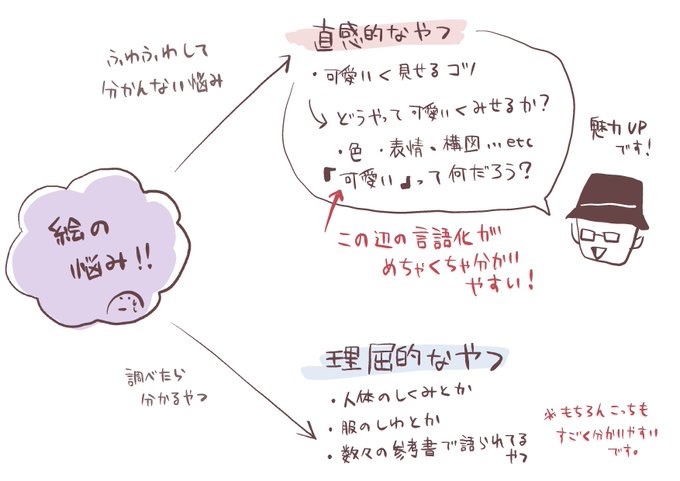 絵の
悩み!!
ふわふわして
分かんない悩み
直感的なやつ
・可愛いく見せるコツ
どうやって可愛いくみせるか?
・色 ・表情・構図...etc
『可愛い』って何だろう?
この辺の言語化が
めちゃくちゃ分かり
やすい!
魅力UP
です!
調べたら
分かるやつ
理屈的なやつ
・人体のしくみとか
・服のしわとか
・数々の参考書で語られてる
やつ
※もちろんこっちも
すごく分かりやすい
です。